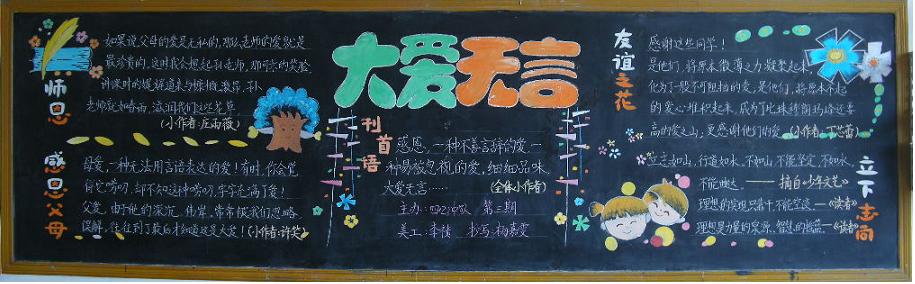 师恩
如果说,父母的爱是无私的,那么老师的爱就是
最珍贵的,这时我会想起孙老师,那可亲的笑脸,
老师就如春雨,滋润我们这些苗草
(小作者:庄雨薇)
感恩父母
母爱,一种无法用言语表达的爱!有时,你会觉
得她唠叨,却不知这种唠叨,牢牢充满了爱!
父爱,由于他的深沉,伟岸,常常被我们忽略
误解,往往到了最后才知道这是大爱!(小作者:许笑)
大爱无言
刊首语
感恩,一种不善言辞的爱
一种易被忽视的爱,细细品味
大爱无言……(全体小作者)
主办:四2)中队 第三期
美工:李倩 书写:杨慕雯
友谊之花
感谢这些同学!
是他们,将原本微薄之力凝聚起来,
化为了一股不可阻挡的爱,是他们,将原本不起
的爱心堆积起来,成为了比珠穆朗玛峰还要
高的爱之山,更感谢他们的爱
立下志向
立志如山,行道如水,不如山,不能坚定,不如水,
不能曲达。——摘自《少年文艺》
理想的实现只靠干,不能空谈——《读者》
理想是力量的泉源、智慧的摇篮—《读者》